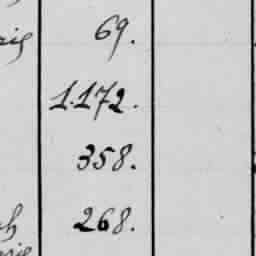 69.
1.172.
358.
268.